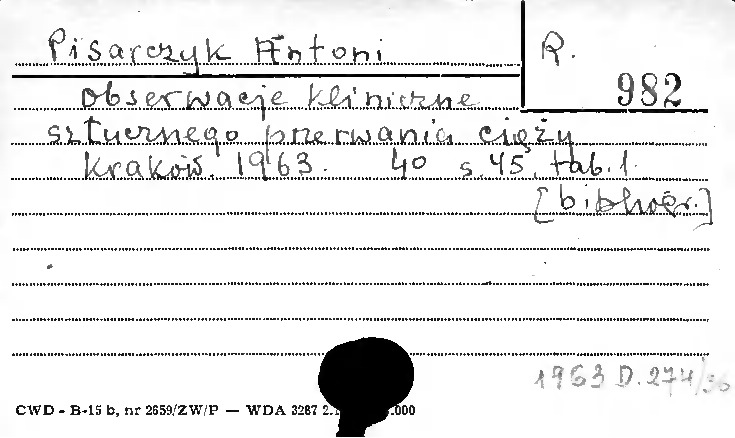 Pisarczyk Antoni
R.
982
Obserwacje kliniczne
sztucznego przerwania ciąży
Kraków. 1963. 4° s.45, tab.1.
[bibliogr.]
1963 D.274/56
CWD - B-15 b, nr 2659/ZW/P — WDA 3287 .000